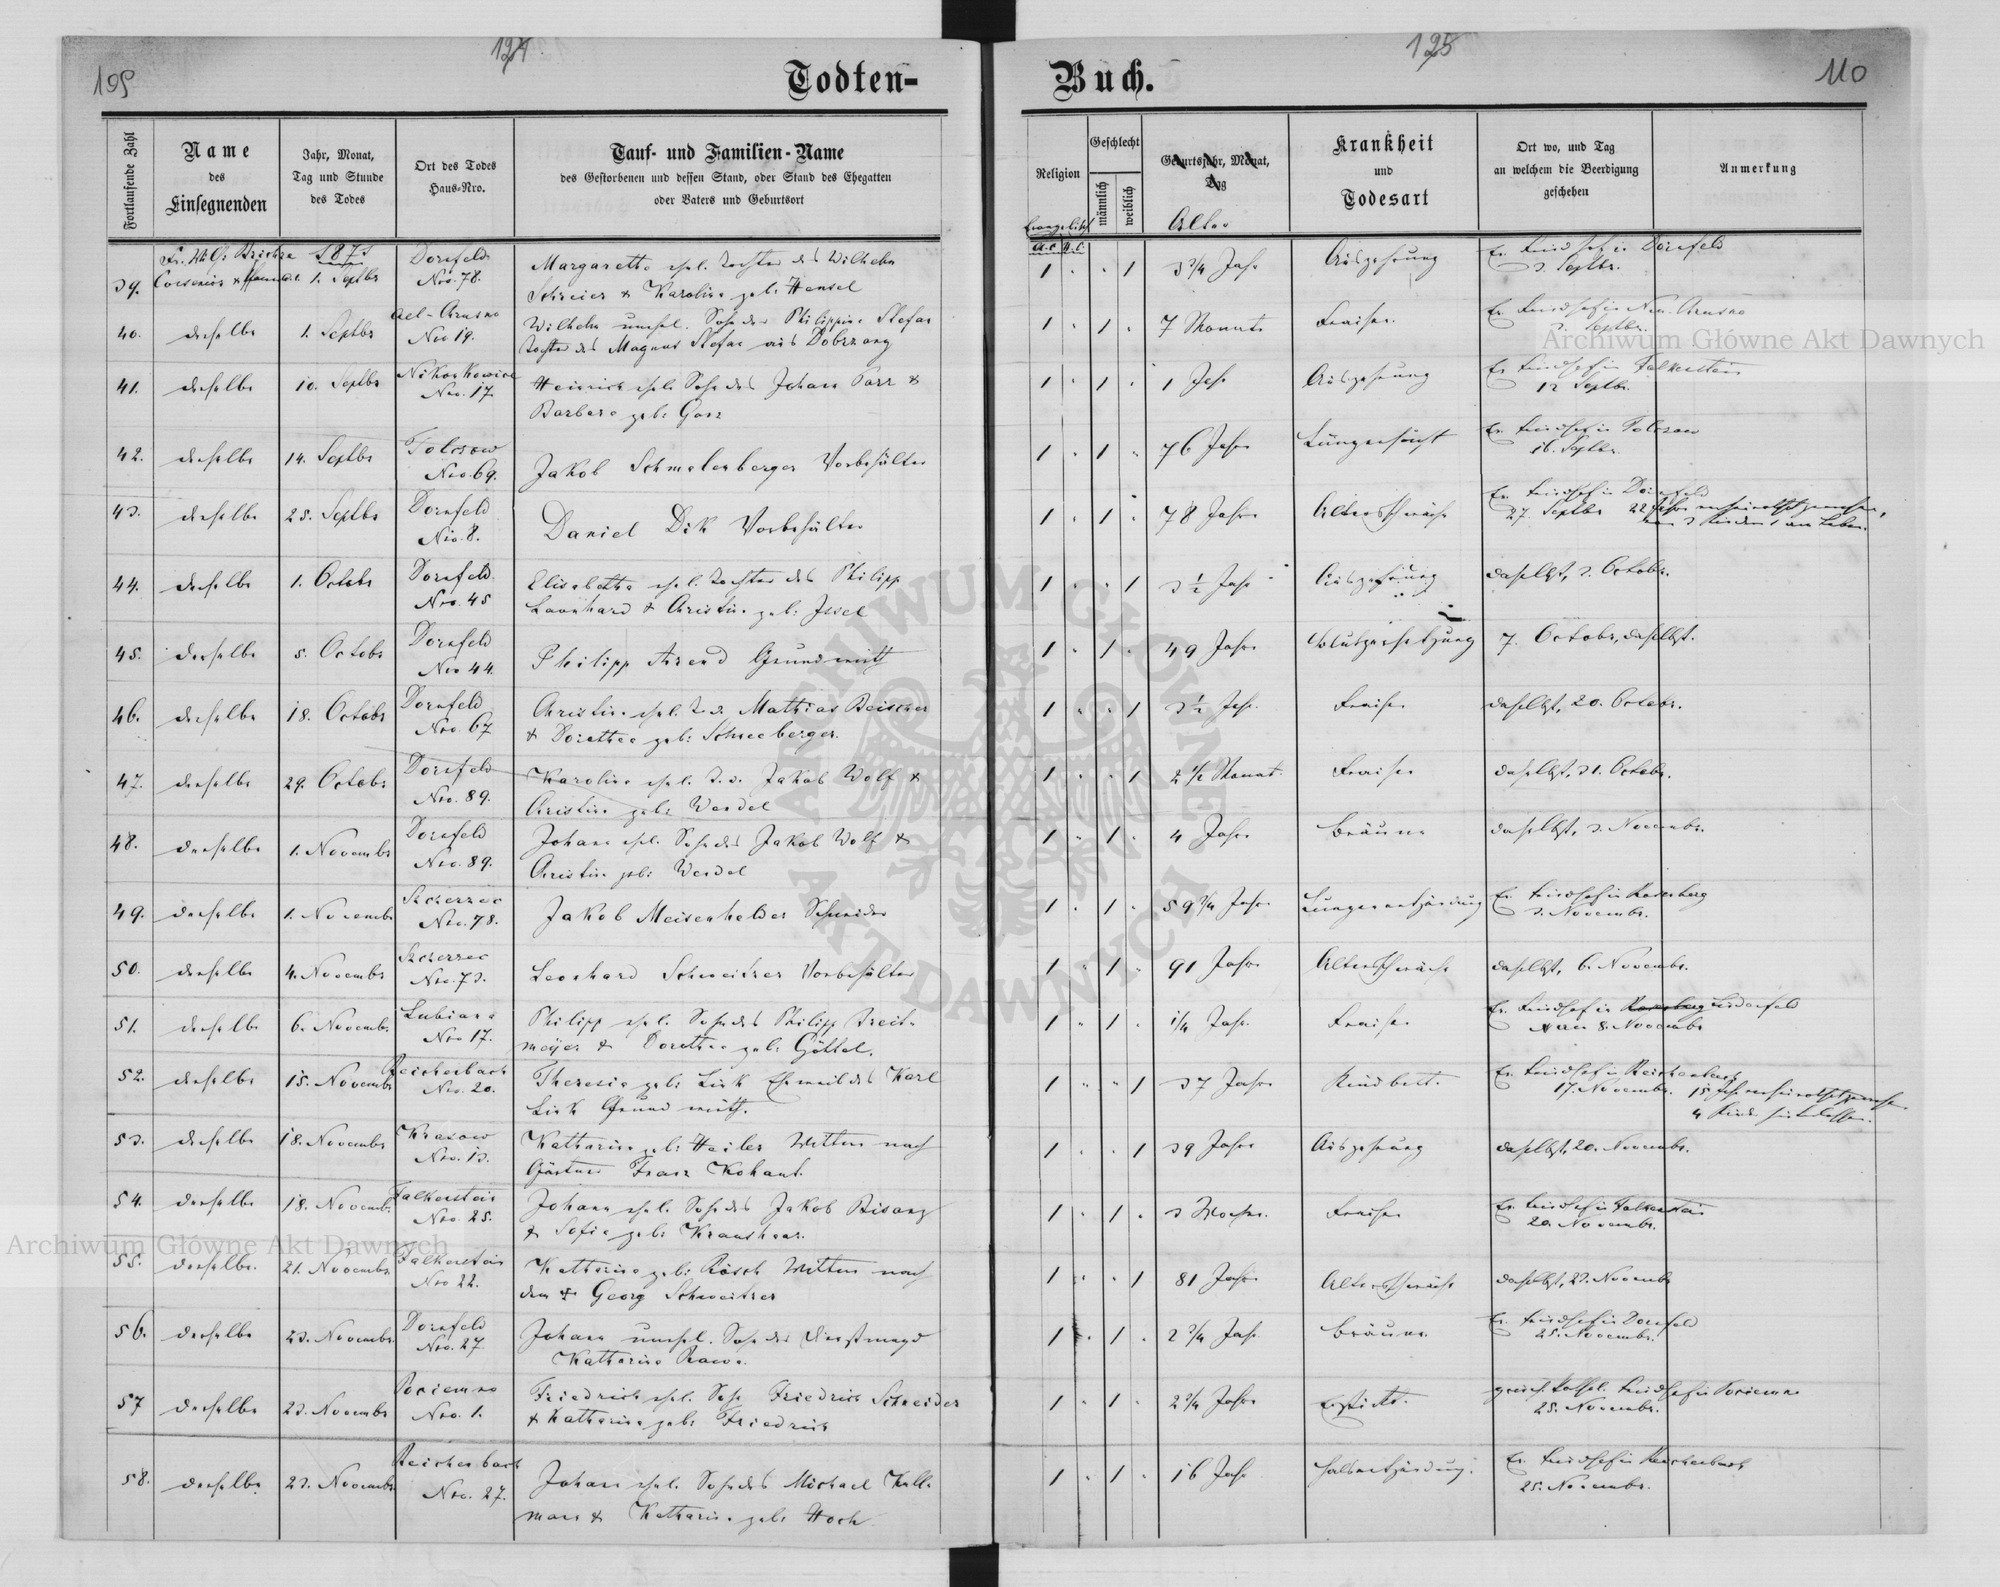 124
125
109
110
Todten-
Buch.
Fortlaufende Zahl
Name
des
Einsegnenden
Jahr, Monat,
Tag und Stunde
des Todes
Ort des Todes
Haus-Nro.
Tauf- und Familien-Name
des Gestorbenen und dessen Stand, oder Stand des Ehegatten
oder Vaters und Geburtsort
Religion
Evangelisch
A.C. H.C.
Geschlecht
männlich
weiblich
Geburtsjahr, Monat,
Tag
Alter
Krankheit
und
Todesart
Ort wo, und Tag
an welchem die Beerdigung
geschehen
Anmerkung
39.
1. Septbr
Dornfeld
Nro. 78.
Margaretha ehel. Tochter des Wilhelm
Schreier & Karoline geb. Hensel
1 1 3 3/4 Jahr Auszehrung
Ev. Friedhof in Dornfeld
3. Septbr.
40. derselbe 1. Septbr
Nro 19.
Wilhelm unehel. Sohn der Philippine Stefan
Tochter des Magnus Stefan aus Dobrzany
1 1 7 Monate Fraisen
3. Septbr.
41. derselbe 10. Septbr
Nikonkowice
Nro. 17
Heinrich ehel. Sohn des Johann Parr &
Barbara geb.
1 1 1 Jahr Auszehrung
Ev. Friedhof in Falkenstein
12 Septbr.
42. derselbe 14. Septbr
Nro 69.
Jakob Schmalenberger Vorbehälter
1 1 76 Jahre Lungensucht
16. Septbr.
43. derselbe 25. Septbr
Dornfeld
Nro. 8.
Daniel Dik Vorbehälter
1 1 78 Jahre Altersschwäche
Ev. Friedhof in Dornfeld
27 Septbr
22 Jahre verheirathet gewesen,
von 3 Kindern 1 am Leben.
44. derselbe 1. Octobr
Dornfeld
Nro. 45
Elisabetha ehel. Tochter des Philipp
Leonhard & Christine geb. Issel
1 1 3 1/2 Jahr Auszehrung daselbst, 3. Octobr.
45. derselbe 5. Octobr
Dornfeld
Nro 44.
Philipp Arend Grundwirth
1 1 49 Jahre Blutzersetzung 7. Octobr, daselbst.
46. derselbe 18. Octobr
Dornfeld
Nro. 67
Christine ehel. T. d. Mathias Beischer
& Dorothea geb. Schneeberger.
1 1 3 1/2 Jahr. Fraisen daselbst, 20. Octobr.
47. derselbe 29. Octobr
Dornfeld
Nro. 89.
Karoline ehel. T. d. Jakob Wolf &
Christine geb. Wendel
1 1 2 1/2 Monat. Fraisen daselbst, 31. Octobr.
48. derselbe 1. Novembr
Dornfeld
Nro. 89.
Johann ehel. Sohn des Jakob Wolf &
Christine geb. Wendel
1 1 4 Jahre Bräune daselbst, 3. Novembr.
49. derselbe 1. Novembr
Szczerzec
Nro. 78.
Jakob Meisenhelder Schneider
1 1 59 3/4 Jahre Lungenentzündung
Ev. Friedhof in Rosenberg
3. Novembr.
50. derselbe 4. Novembr
Szczerzec
Nro. 73.
Leonhard Schweitzer Vorbehälter
1 1 91 Jahre Altersschwäche daselbst, 6. Novembr.
51. derselbe 6. Novembr
Lubiana
Nro 17.
Philipp ehel. Sohn des Philipp Breit-
meyer & Dorothea geb. Göttel.
1 1 1/4 Jahr. Fraisen
Ev. Friedhof in Rosenberg Lindenfeld
8. Novembr
52. derselbe 15. Novembr
Reichenbach
Nro. 20.
Theresia geb. Link Eheweib des Karl
Link Grundwirth.
1 1 37 Jahre Kindbett.
Ev. Friedhof in Reichenbach
17. Novembr.
15 Jahre verheirathet gewesen
4 Kinder hinterlassen.
53. derselbe 18. Novembr
Krasow
Nro. 13.
Katharina geb. Heiler Wittwe nach
Gärtner Franz Kohaut.
1 1 39 Jahre Auszehrung daselbst, 20. Novembr.
54. derselbe 18. Novembr.
Falkenstein
Nro. 25.
Johann ehel. Sohn des Jakob Bisanz
& Sofie geb. Kraushaar.
1 1 3 Wochen. Fraisen
Ev. Friedhof in Falkenstein
20. Novembr.
55. derselbe. 21. Novembr.
Falkenstein
Nro 22.
Katharina geb. Rösch Wittwe nach
dem † Georg Schweitzer
1 1 81 Jahre Altersschwäche daselbst, 23. Novembr
56. derselbe 23. Novembr.
Dornfeld
Nro. 27.
Johann unehel. Sohn der Dienstmagd
Katharina
1 1 2 3/4 Jahr Bräune
Ev. Friedhof in Dornfeld
25. Novembr.
57 derselbe 23. Novembr
Nro. 1.
Friedrich ehel. Sohn Friedrich Schneider
& Katharina geb. Friedrich
1 1 2 3/4 Jahre Erstickt.
25. Novembr.
58. derselbe 23. Novembr.
Reichenbach
Nro. 27.
Johann ehel. Sohn des Michael Kull-
mann & Katharina geb. Hoch
1 1 16 Jahr Halsentzündung.
Ev. Friedhof in Reichenbach
25. Novembr.
Archiwum Główne Akt Dawnych
Archiwum Główne Akt Dawnych
ARCHIWUM GŁÓWNE AKT DAWNYCH